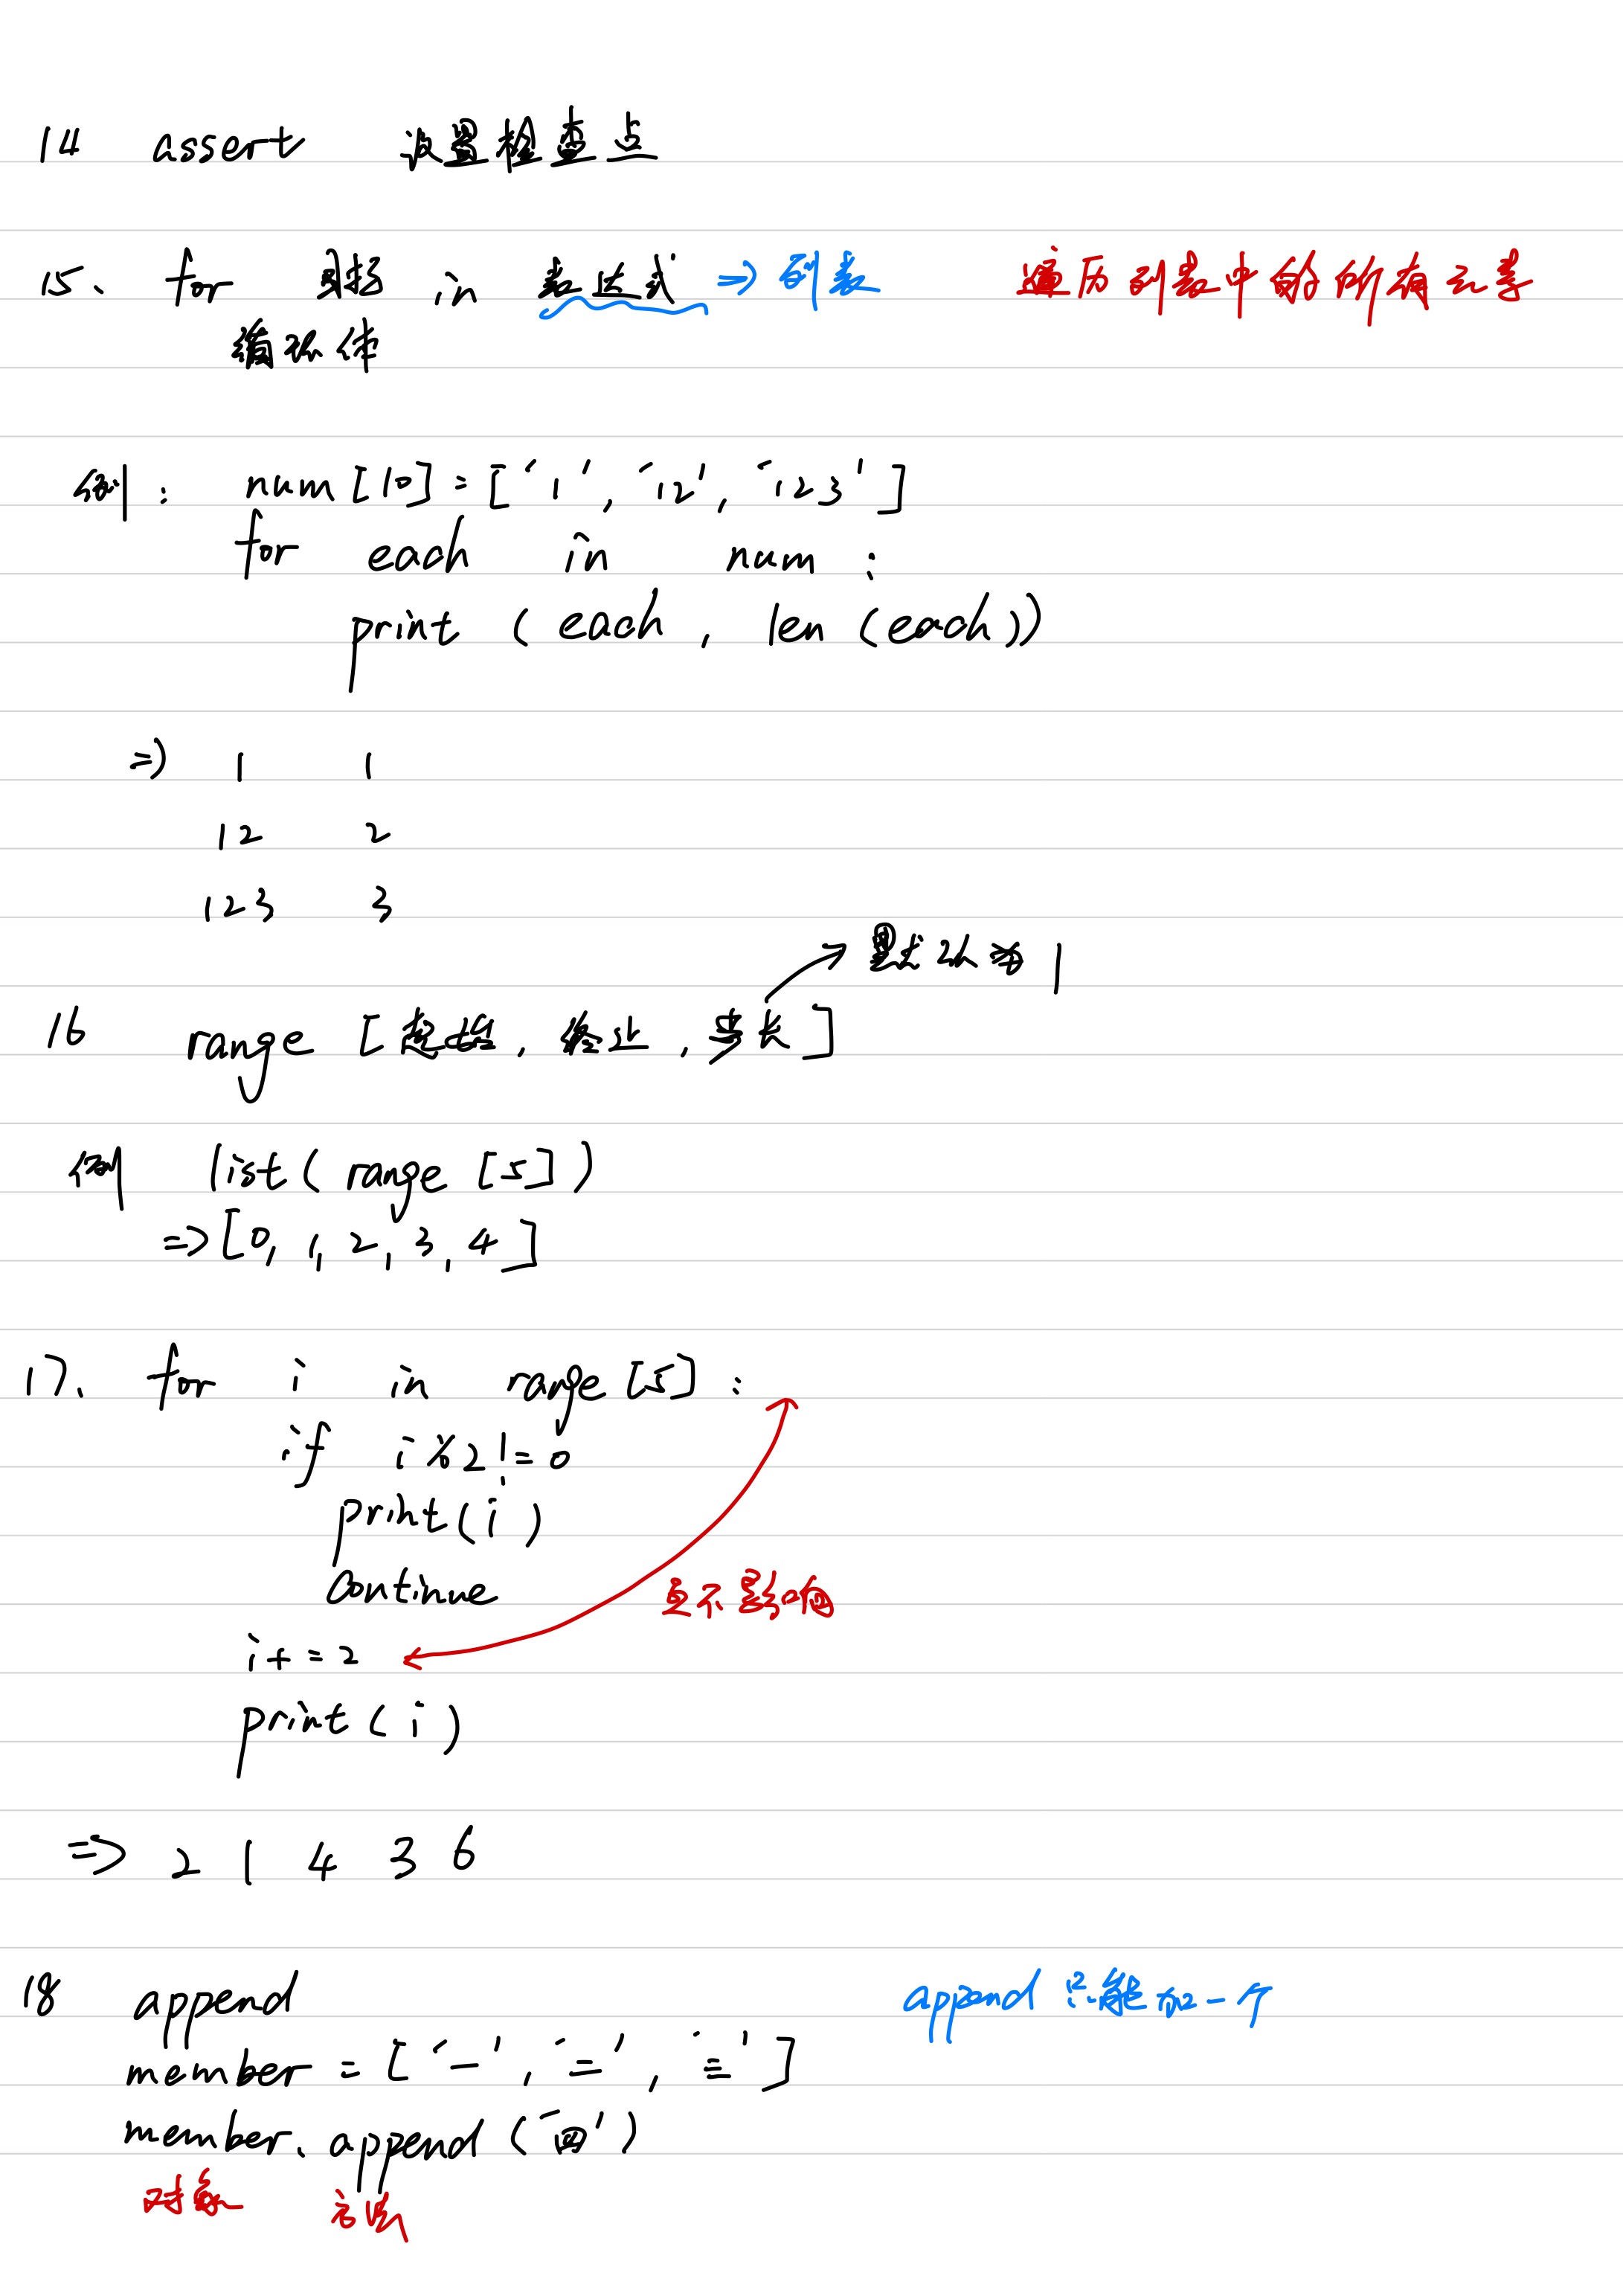 14 assert 设置检查点
15、for 目标 in 表达式 => 列表 遍历列表中的所有元素
循环体
例： num[10]=['1','12','123']
for each in num :
print (each, len(each))
=> 1 1
12 2
123 3
默认为1
16 range [起始, 终止, 步长]
例 list(range[5])
=> [0,1,2,3,4]
17. for i in range[5]:
if i%2!=0
print(i)
continue
互不影响
i+=2
print(i)
=> 2 1 4 3 6
18 append append只能加一个
member = ['一','二','三']
member.append('四')
对象 方法